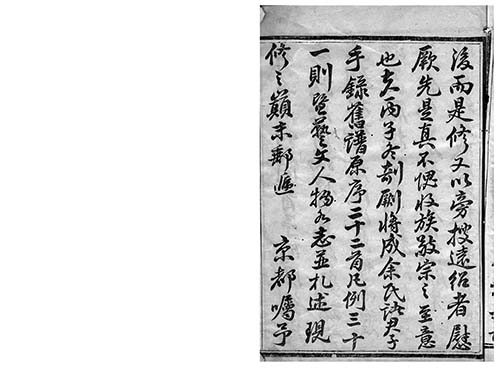 後而是修又以旁搜遠紹者慰
厥先是真不愧收族敬宗之至意
也夫丙子冬剞劂將成余氏諸君子
手錄舊譜原序二十二首凡例三十
一則暨藝文人物各志並札述現
修之巔末郵遞 京都囑予